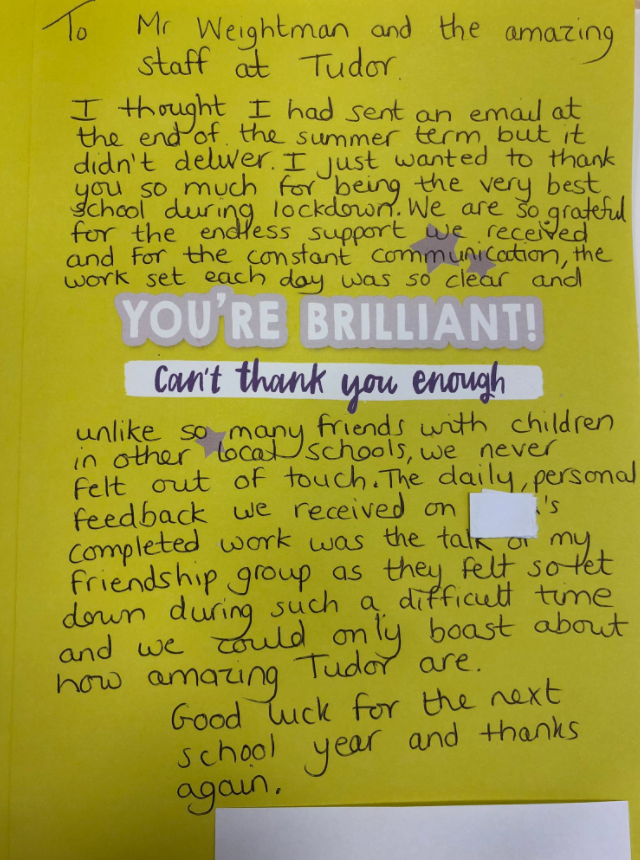 To Mr Weightman and the amazing
staff at Tudor.
I thought I had sent an email at
the end of the summer term but it
didn't deliver. I just wanted to thank
you so much for being the very best
school during lockdown. We are so grateful
for the endless support we received
and for the constant communication, the
work set each day was so clear and
YOU'RE BRILLIANT!
Can't thank you enough
unlike so many friends with children
in other local schools, we never
felt out of touch. The daily, personal
feedback we received on 's
completed work was the talk of my
friendship group as they felt so let
down during such a difficult time
and we could only boast about
how amazing Tudor are.
Good luck for the next
school year and thanks
again.